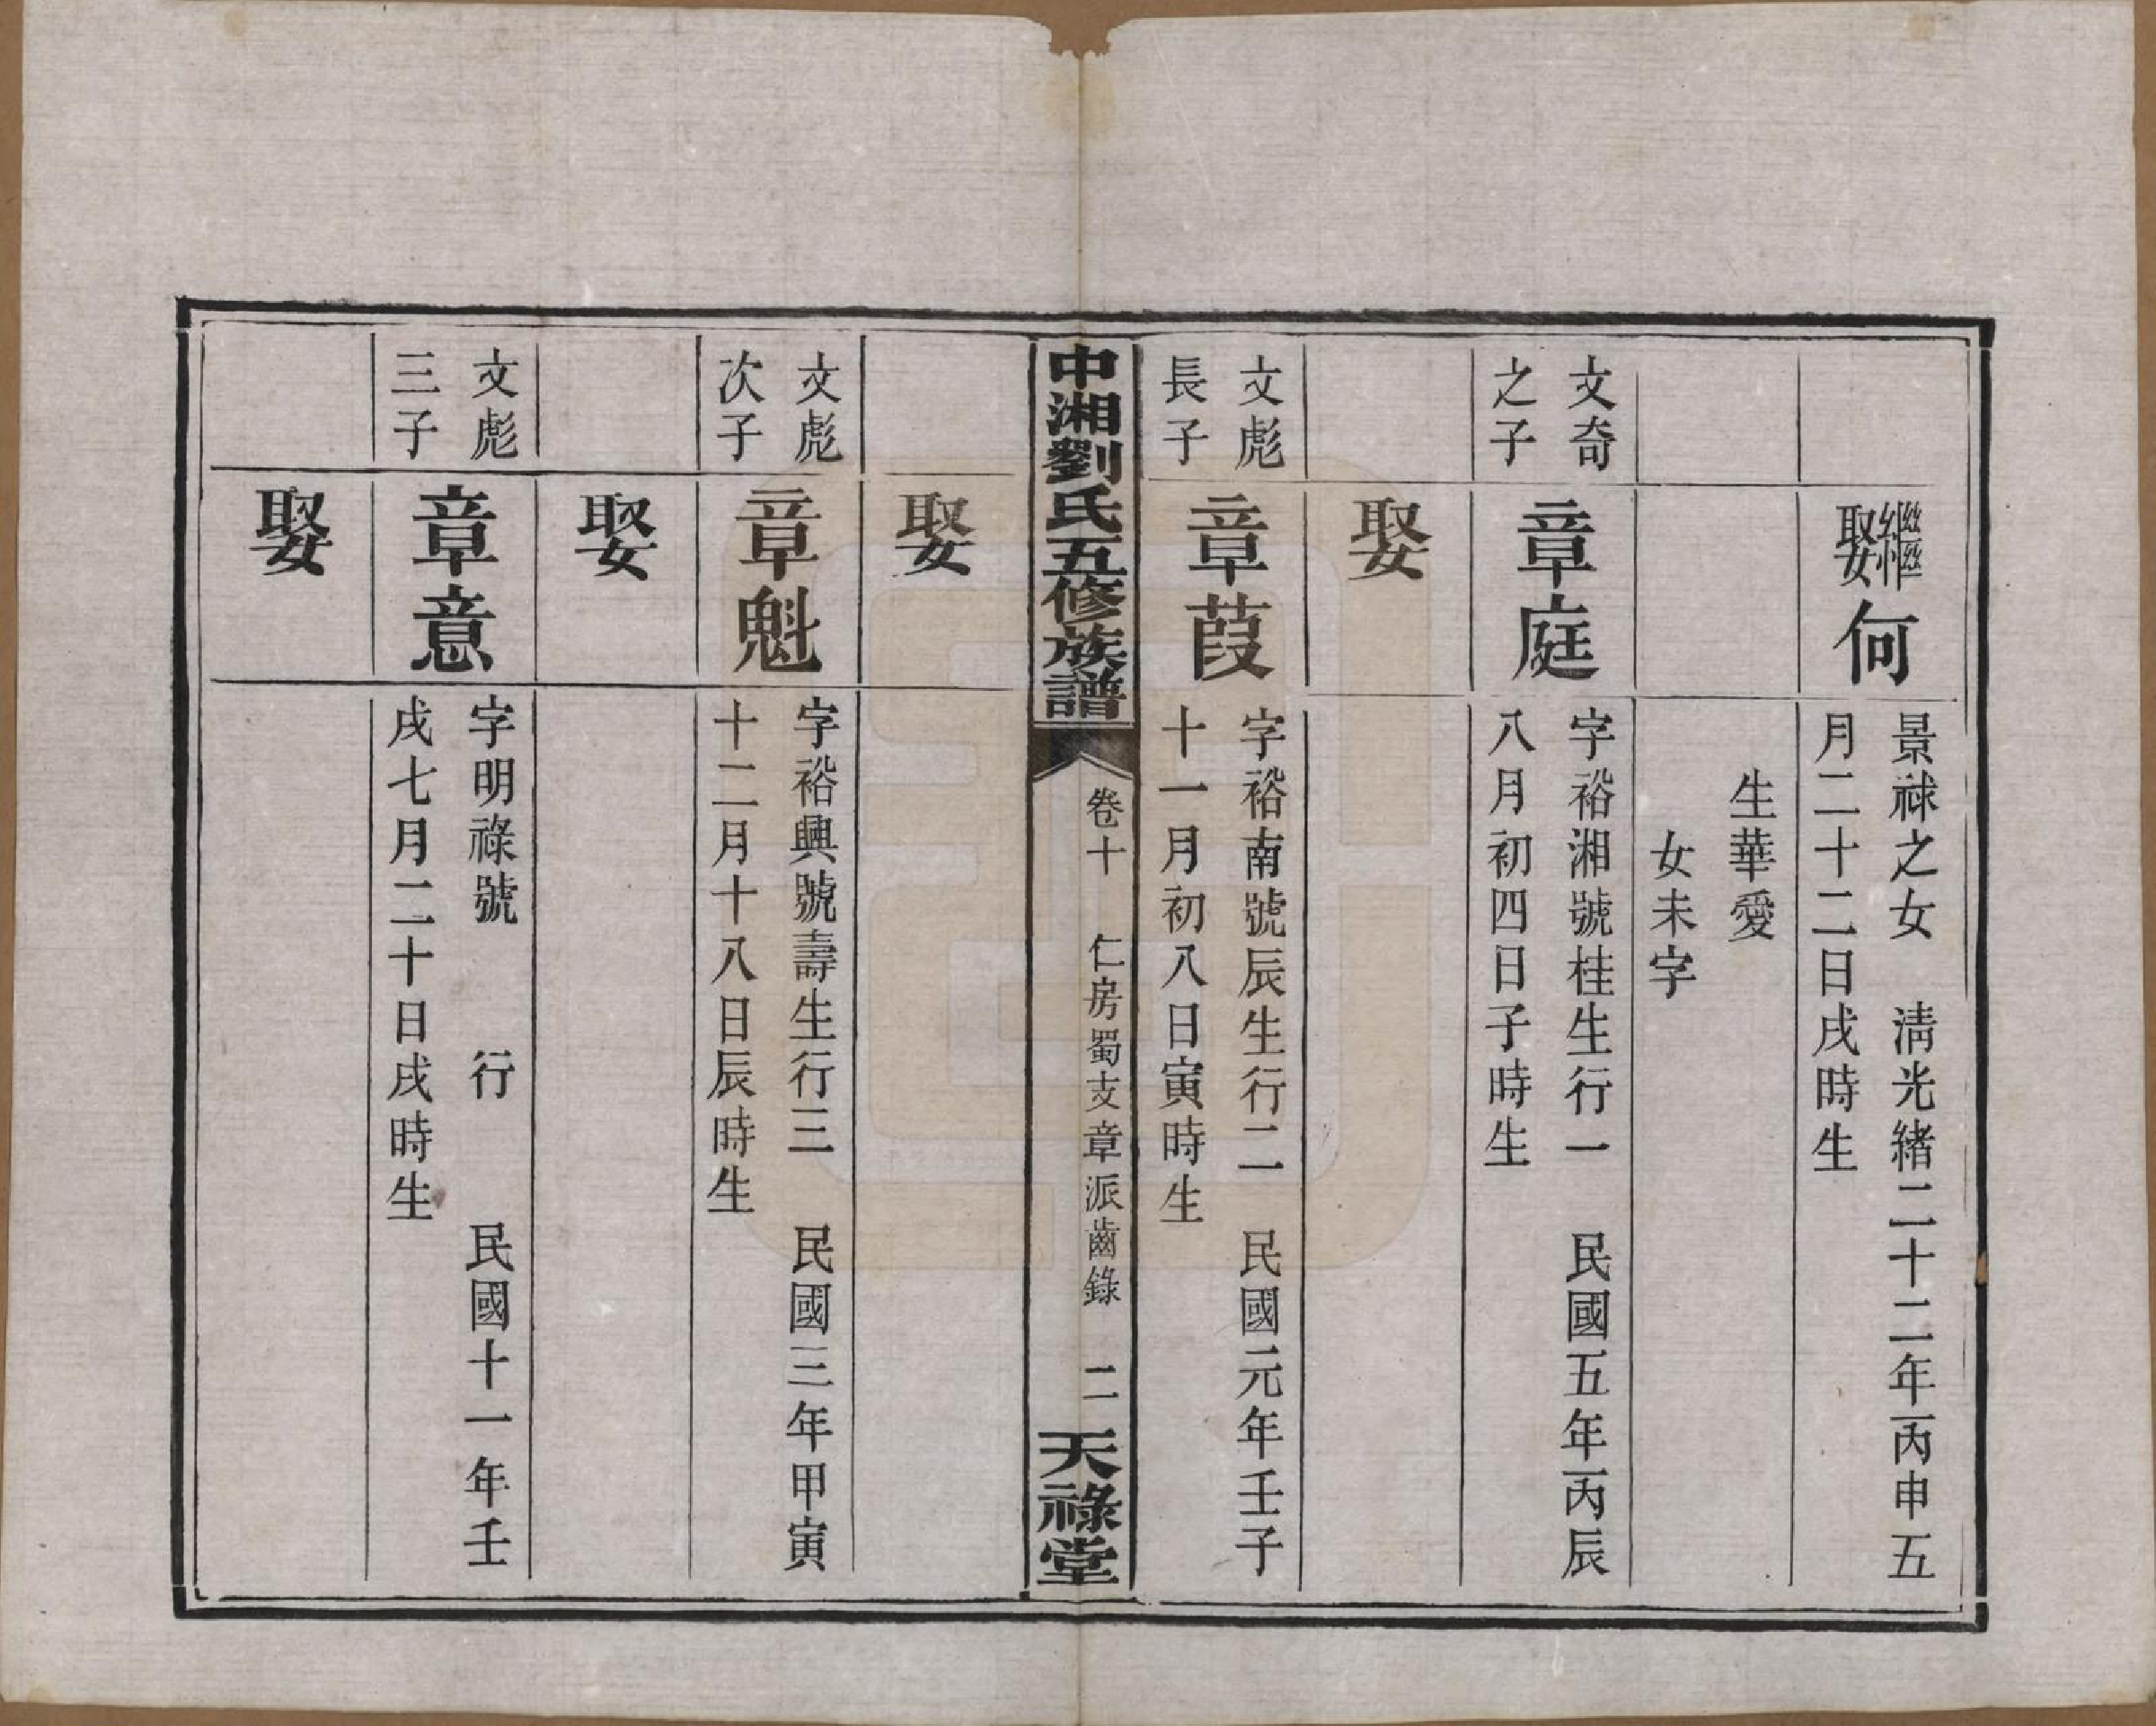 繼娶何
景祿之女　清光緒二十二年丙申五
月二十二日戌時生
生華愛
女未字
文奇
之子
章庭
字裕湘號桂生行一　民國五年丙辰
八月初四日子時生
娶
文彪
長子
章葭
字裕南號辰生行二　民國元年壬子
十一月初八日寅時生
中湘劉氏五修族譜
卷十　仁房蜀支章派齒錄　二
天祿堂
娶
文彪
次子
章魁
字裕興號壽生行三　民國三年甲寅
十二月十八日辰時生
娶
文彪
三子
章意
字明祿號　　行　　民國十一年壬
戌七月二十日戌時生
娶